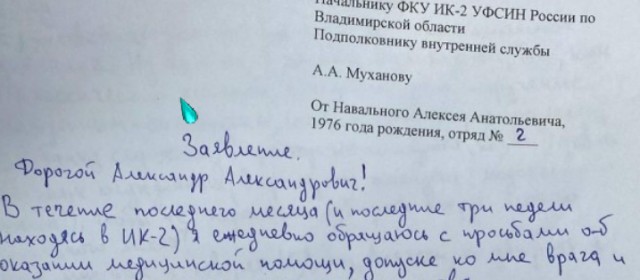 Начальнику ФКУ ИК-2 УФСИН России по
Владимирской области
Подполковнику внутренней службы
А.А. Муханову
От Навального Алексея Анатольевича,
1976 года рождения, отряд № 2
Заявление.
Дорогой Александр Александрович!
В течение последнего месяца (и последние три недели
находясь в ИК-2) я ежедневно обращаюсь с просьбами об
оказании медицинской помощи, допуске ко мне врача и